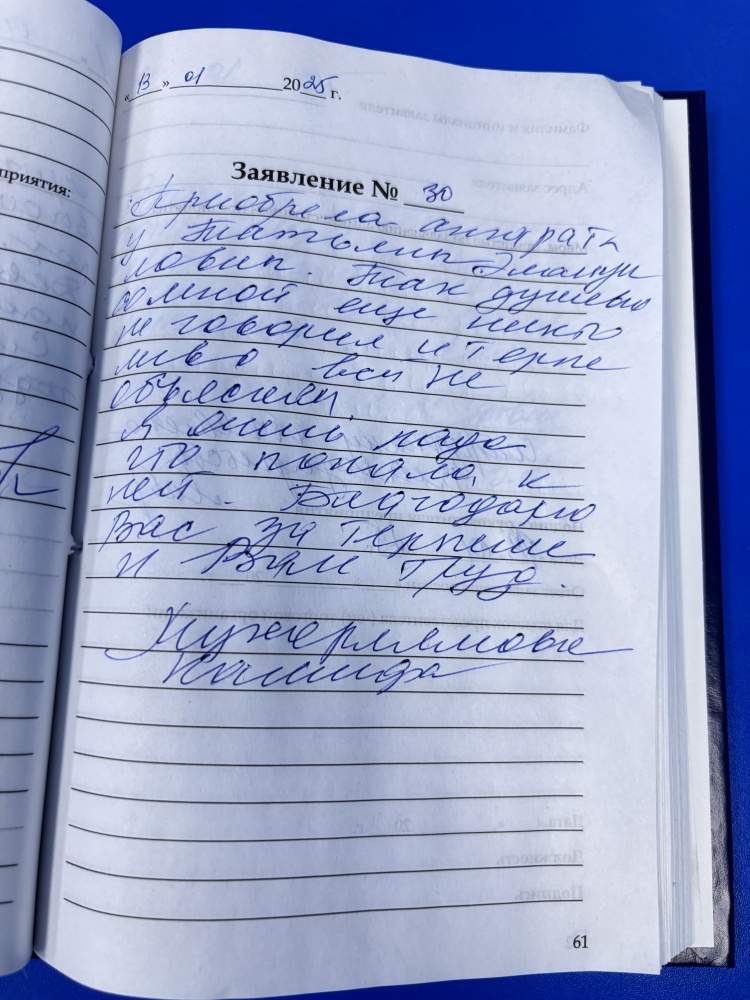 приятия:
«13» 01 2025 г.
Заявление № 30
Приобрела аппарать
у Татьяны Эмануи
ловны. Так душевно
со мной еще никто
не говорил и терпе
ливо все не
объяснял.
Я очень рада
что попала к
ней. Благодарю
Вас за терпение
и Ваш труд.
61